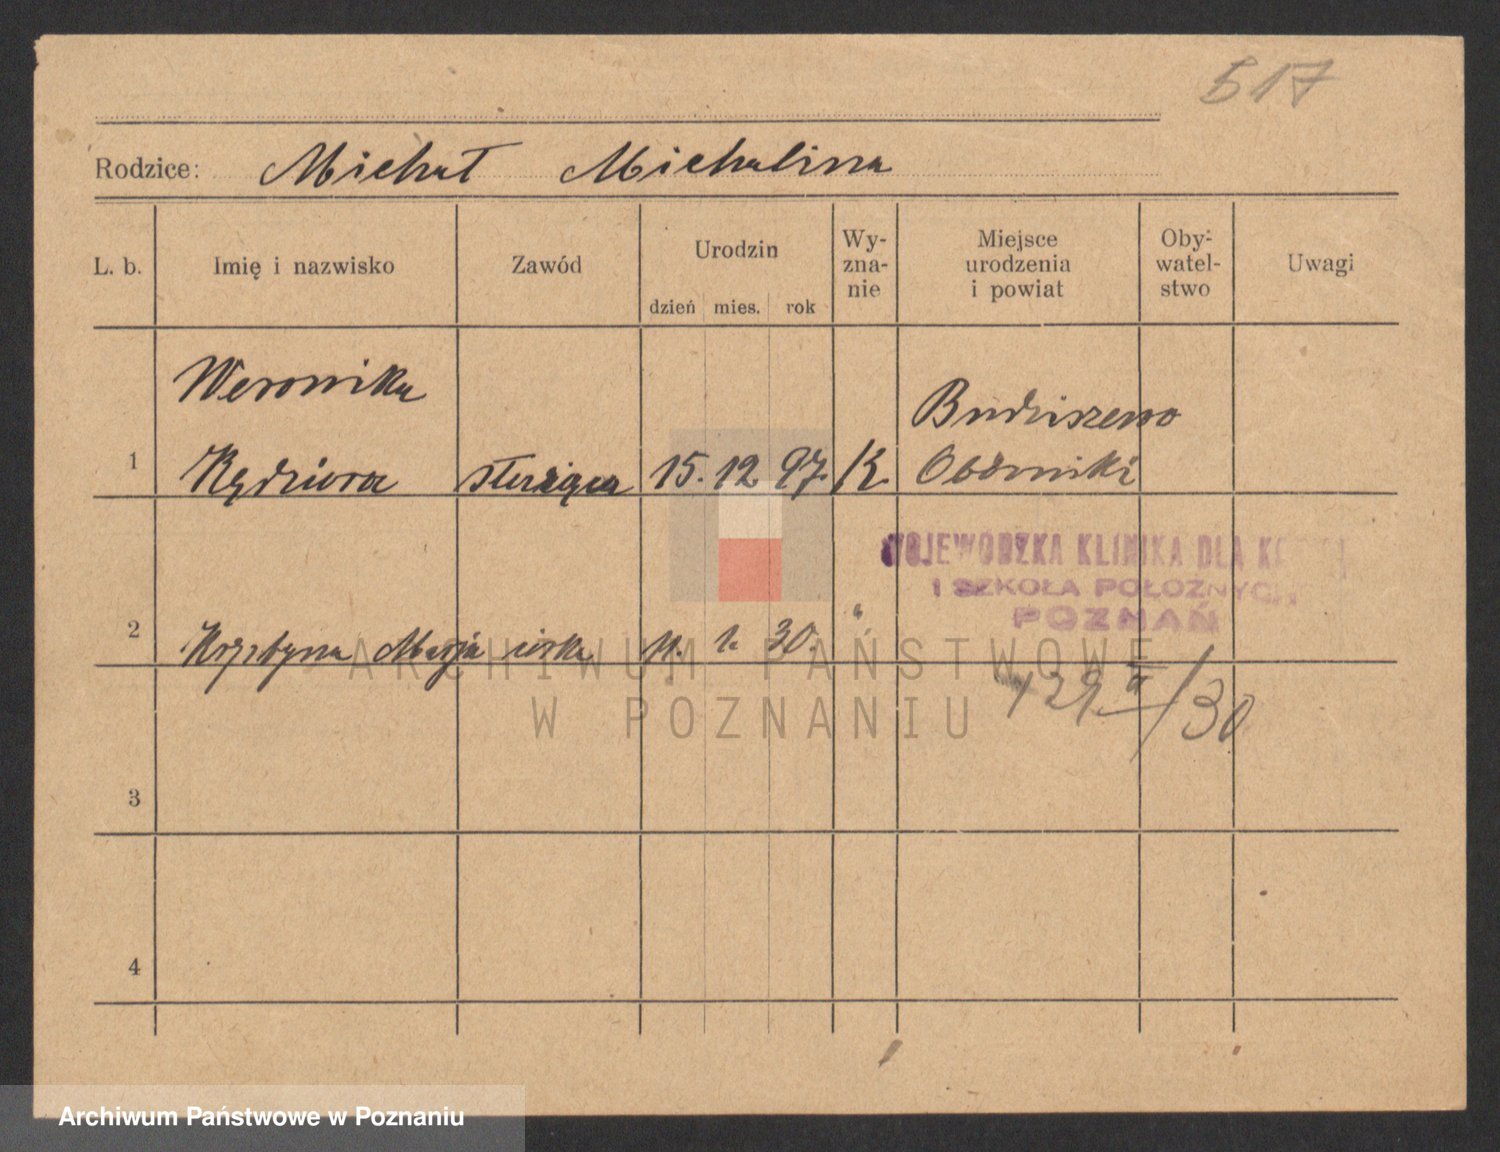 517
Rodzice: Michał Michalina
L. b. Imię i nazwisko Zawód Urodzin dzień mies. rok Wy-zna-nie Miejsce urodzenia i powiat Oby-watel-stwo Uwagi
Weronika
Budziszewo
1 Kędziora służąca 15. 12 97. K. Oborniki
WOJEWÓDZKA KLINIKA DLA
I SZKOŁA POŁOŻNYCH
POZNAŃ
2 Krystyna Marja córka 11. 1. 30. "
ARCHIWUM PAŃSTWOWE
W POZNANIU
129 /30
3
4
Archiwum Państwowe w Poznaniu